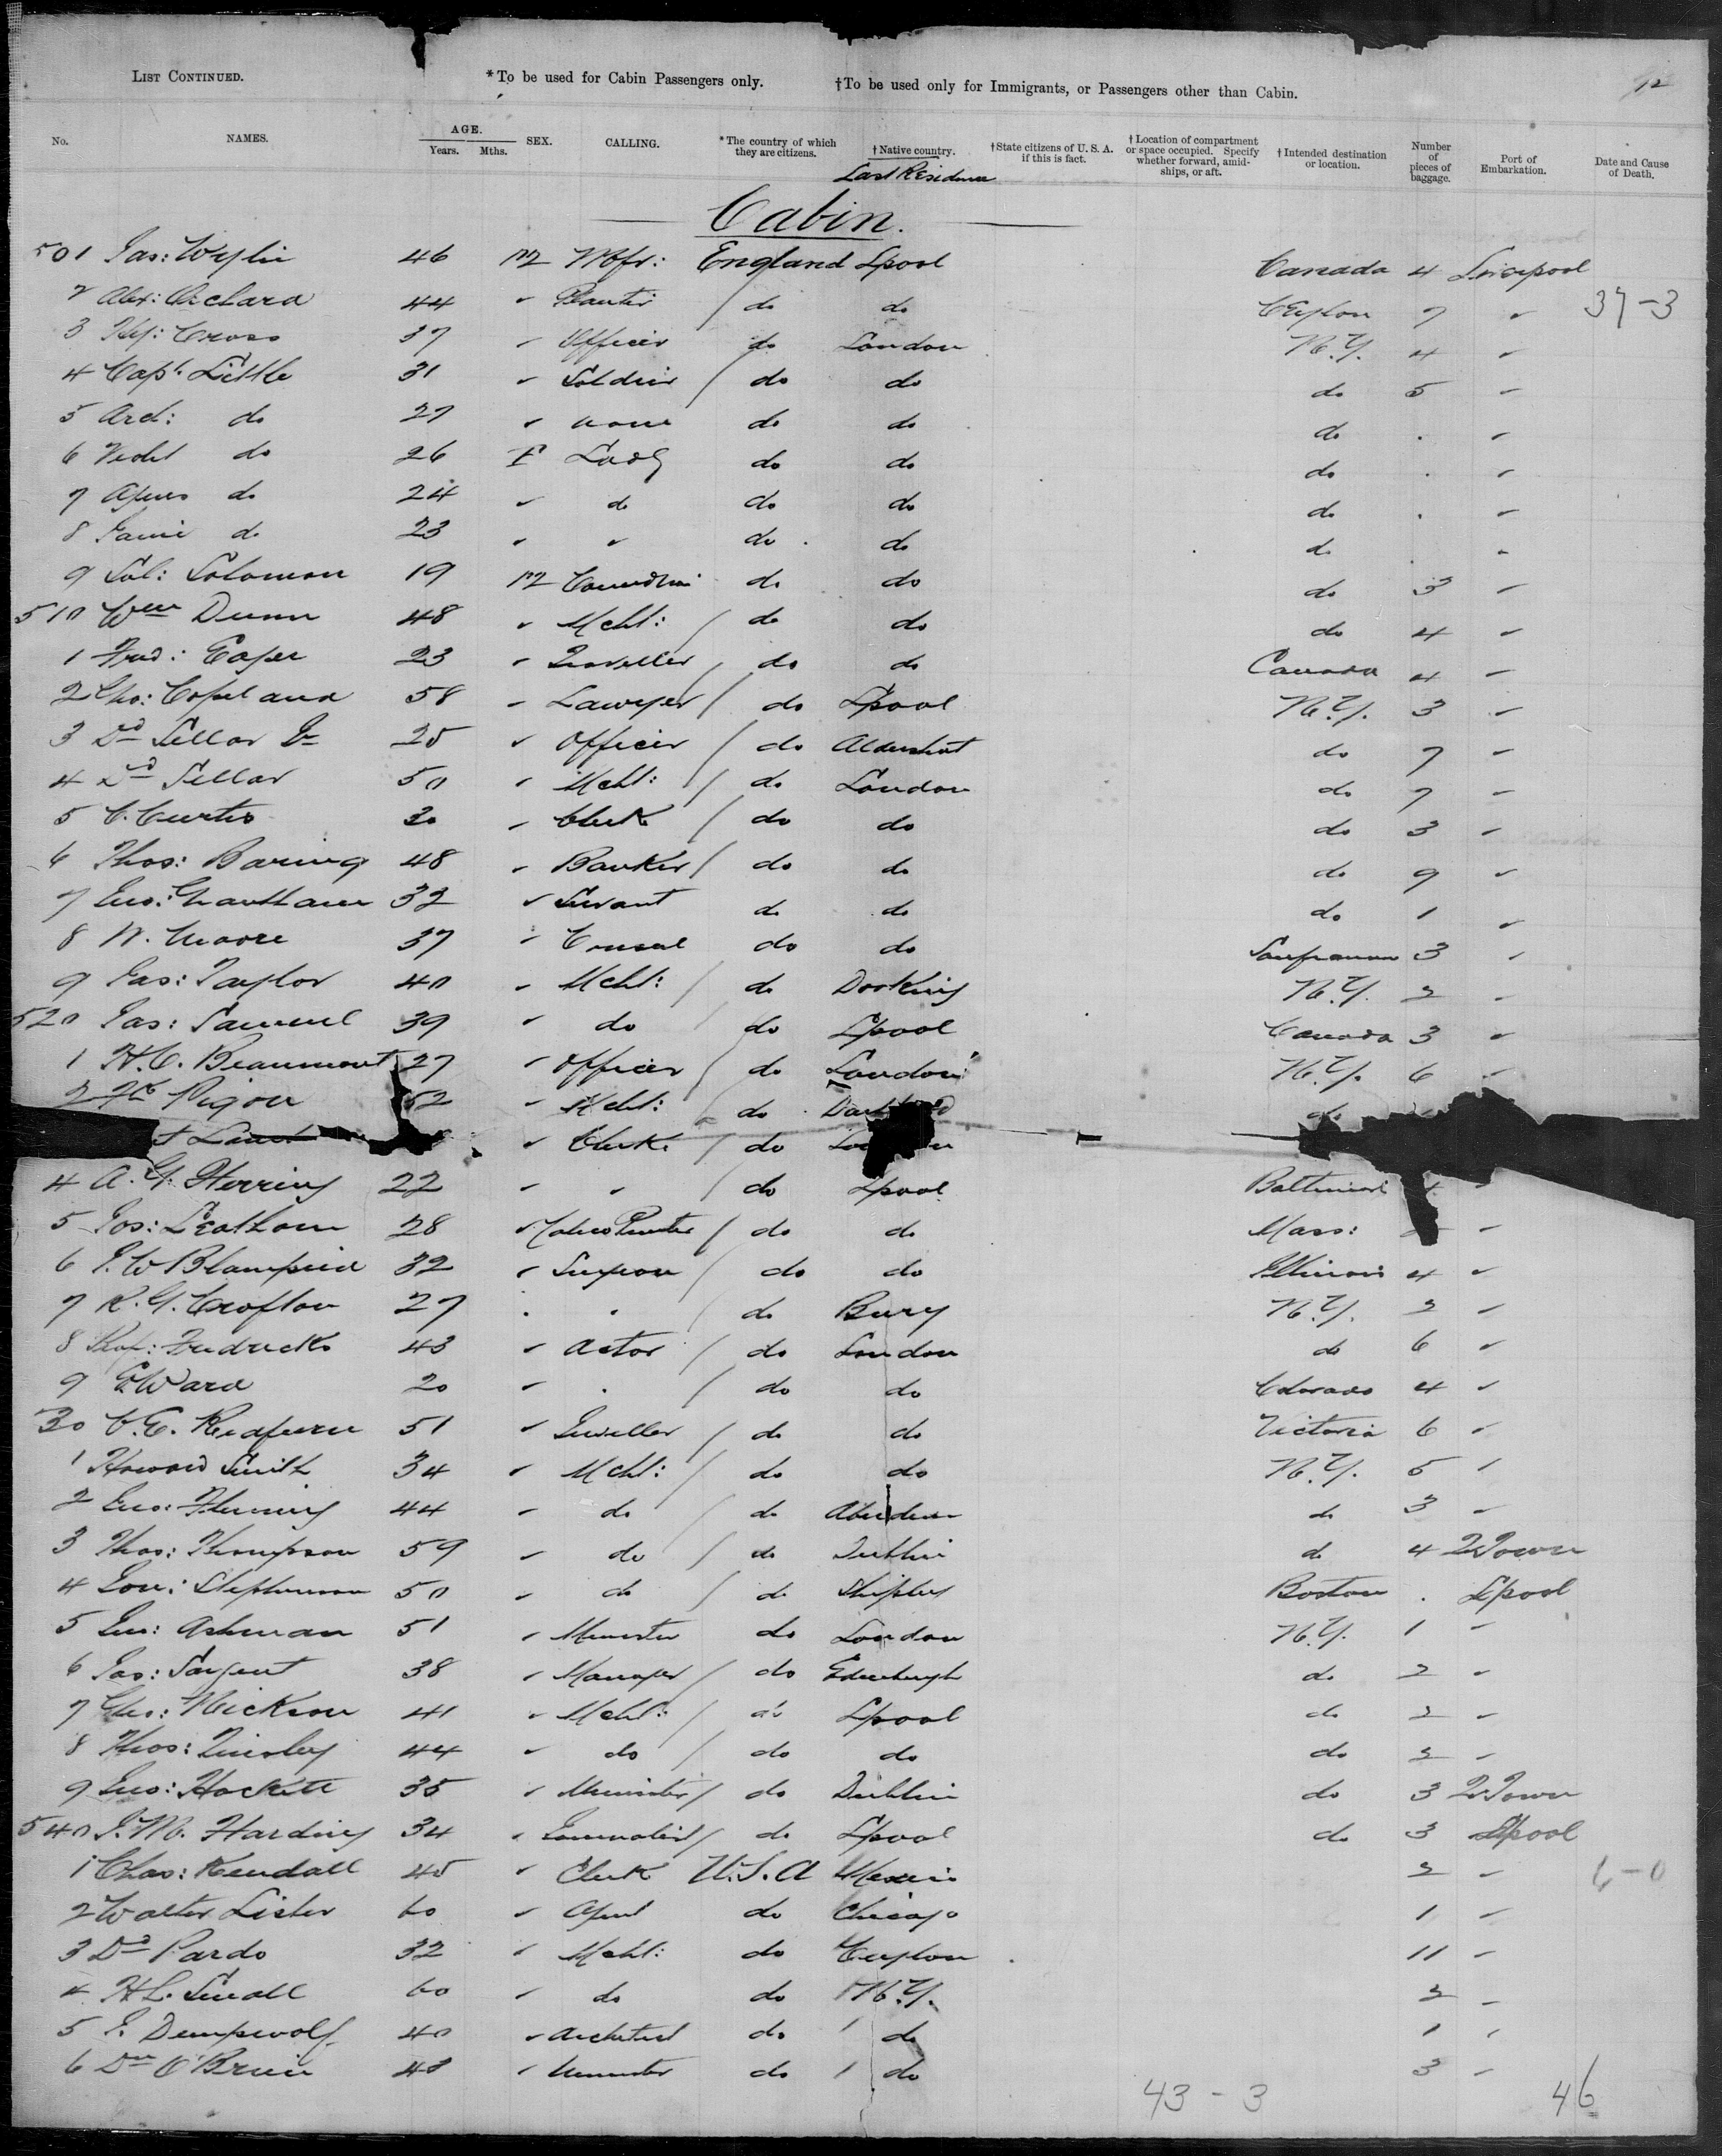 LIST CONTINUED. *To be used for Cabin Passengers only. †To be used only for Immigrants, or Passengers other than Cabin. 92
No. NAMES. AGE. Years. Mths. SEX. CALLING. *The country of which they are citizens. †Native country. †State citizens of U. S. A. if this is fact. †Location of compartment or space occupied. Specify whether forward, amid-ships, or aft. †Intended destination or location. Number of pieces of baggage. Port of Embarkation. Date and Cause of Death.
Last Residence
Cabin.
501 Jas: Wylie 46 M Mfr: England Lpool Canada 4 Liverpool
2 Alex: 44 " Planter / do do Ceylon 7 " 37-3
3 Hy: Cross 37 " Officer do London N.Y. 4 "
4 Capt. Little 31 " Soldier / do do do 5 "
5 Arch: do 27 " none do do do . "
6 Violet do 26 F Lady do do do . "
7 Agnes do 24 " do do do do . "
8 do 23 " " do do do . "
9 Sol: Solomon 19 M Comedian do do do 3 "
510 Wm Dunn 48 " Mcht: / do do do 4 "
1 Fred: 23 " Traveller / do do Canada 4 "
2 Copeland 58 " Lawyer / do Lpool N.Y. 3 "
3 Dd Sellar Jr 25 " Officer / do Aldershot do 7 "
4 Dd Sellar 50 " Mcht: / do London do 7 "
5 C. Curtis 30 " Clerk / do do do 3 "
6 Thos: Baring 48 " Banker / do do do 9 "
7 Jno: Grantham 32 " Servant do do do 1 "
8 N. Moore 37 " Consul do do 3 "
9 Jas: Taylor 40 " Mcht: / do Dorking N.Y. 2 "
520 Jas: Samuel 39 " do / do Lpool Canada 3 "
1 H.C. Beaumont 27 " Officer / do London N.Y. 6 "
2 Fk Pigou 52 " Mcht: do do
" Clerk / do
4 A. G. Herring 22 " " / do Lpool Baltimore 4 "
5 Jos: Leatham 28 " Calico Printer / do do Mass: "
6 J. W Blampied 32 " Surgeon / do do Illinois 4 "
7 R. G. Crofton 27 " " / do Bury N.Y. 2 "
8 Prof: Fredricks 43 " Actor / do London do 6 "
9 Ward 20 " " / do do Colorado 4 "
30 C. E. Redfern 51 " Jeweller / do do Victoria 6 "
1 Howard Smith 34 " Mcht: / do do N.Y. 5 "
2 Jno: Fleming 44 " do / do Aberdeen do 3 "
3 Thos: Thompson 59 " do / do Dublin do 4 QTown
4 Stephenson 50 " do / do Shipley Boston . Lpool
5 Jno: Ashman 51 " Minister do London N.Y. 1 "
6 Jas: Sargent 38 " Manager / do Edinburgh do 2 "
7 Geo: Hickson 41 " Mcht: / do Lpool do 2 "
8 Thos: Tinsley 44 " do / do do do 2 "
9 Jno: Hackett 35 " Minister / do Dublin do 3 QTown
540 J. M. Harding 34 " Journalist / do Lpool do 3 Lpool
1 Chas: Kendall 45 " Clerk U.S.A Mexico 2 " 6-0
2 Walter Lister 60 " Agent do Chicago 1 "
3 Dd Pardo 32 " Mcht: do Ceylon 11 "
4 H L. Small 60 " do do N.Y. 2 "
5 J. Dempwolf 40 " Architect do / do 1 "
6 O'Brien 40 " Minister do / do 3 "
43 - 3 46